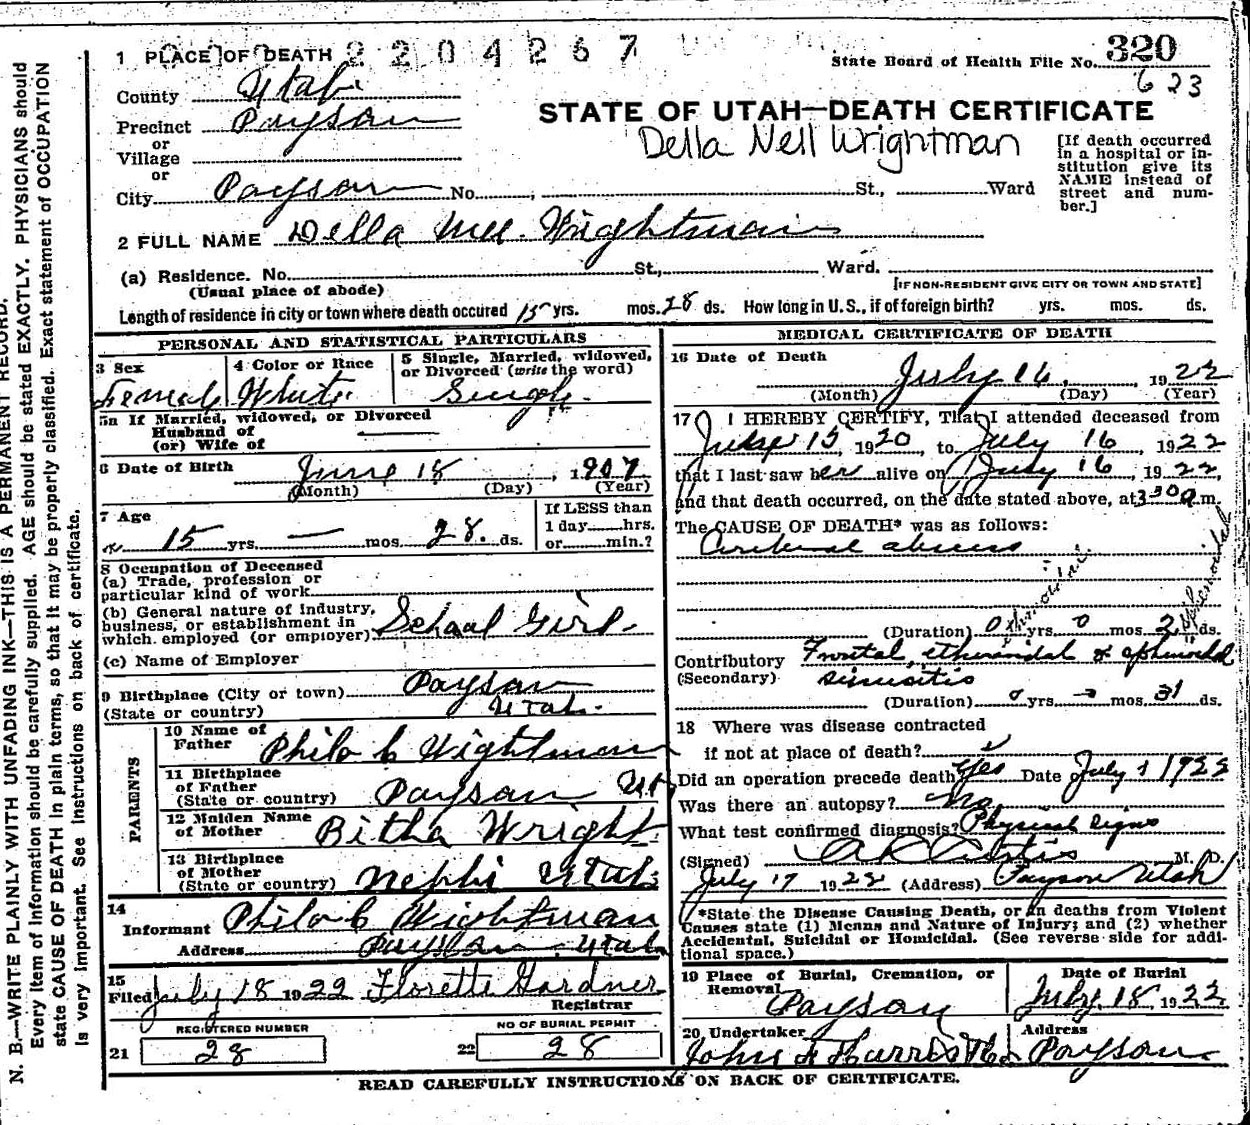 1 PLACE OF DEATH 2204267
State Board of Health File No. 320
623
County Utah
STATE OF UTAH—DEATH CERTIFICATE
Precinct Payson
Della Nell Wrightman
or
Village
or
City Payson No. St., Ward
[If death occurred in a hospital or institution give its NAME instead of street and number.]
2 FULL NAME Della Nell Wightman
(a) Residence. No. St., Ward.
(Usual place of abode)
[IF NON-RESIDENT GIVE CITY OR TOWN AND STATE]
Length of residence in city or town where death occured 15 yrs. mos. 28 ds. How long in U.S., if of foreign birth? yrs. mos. ds.
PERSONAL AND STATISTICAL PARTICULARS
3 Sex
Female
4 Color or Race
White
5 Single, Married, widowed, or Divorced (write the word)
Single
5a If Married, widowed, or Divorced
Husband of
(or) Wife of
6 Date of Birth
June 18, 1907
(Month) (Day) (Year)
7 Age
15 yrs. — mos. 28. ds.
If LESS than
1 day hrs.
or min.?
8 Occupation of Deceased
(a) Trade, profession or
particular kind of work
(b) General nature of Industry,
business, or establishment in
which employed (or employer) School Girl
(c) Name of Employer
9 Birthplace (City or town) Payson
(State or country) Utah.
PARENTS
10 Name of
Father Philo C Wightman
11 Birthplace
of Father
(State or country) Payson Ut
12 Maiden Name
of Mother Bitha Wright
13 Birthplace
of Mother
(State or country) Nephi Utah
14
Informant Philo C Wightman
Address Payson Utah
15
Filed July 18 1922 Florette Gardner
Registrar
REGISTERED NUMBER
21 28
NO OF BURIAL PERMIT
22 28
MEDICAL CERTIFICATE OF DEATH
16 Date of Death
July 16, 1922
(Month) (Day) (Year)
17 I HEREBY CERTIFY, That I attended deceased from
15 1920 to July 16 1922
that I last saw her alive on July 16, 1922,
and that death occurred, on the date stated above, at 3:30 a.m.
The CAUSE OF DEATH* was as follows:
Cerebral abscess
(Duration) 0 yrs. 0 mos. 2 ds.
Contributory Frontal, ethmoidal & sphenoidal
(Secondary) sinusitis
(Duration) 0 yrs. — mos. 31 ds.
18 Where was disease contracted
if not at place of death?
Did an operation precede death Yes Date July 1 1922
Was there an autopsy? no
What test confirmed diagnosis? Physical signs
(Signed) A Curtis M. D.
July 17 1922 (Address) Payson Utah
*State the Disease Causing Death, or in deaths from Violent
Causes state (1) Menns and Nature of Injury; and (2) whether
Accidental, Suicidal or Homicidal. (See reverse side for additional space.)
19 Place of Burial, Cremation, or
Removal
Payson
Date of Burial
July 18, 1922
20 Undertaker
Address
Payson
READ CAREFULLY INSTRUCTIONS ON BACK OF CERTIFICATE.
N. B.—WRITE PLAINLY WITH UNFADING INK—THIS IS A PERMANENT RECORD.
Every item of information should be carefully supplied. AGE should be stated EXACTLY. PHYSICIANS should
state CAUSE OF DEATH in plain terms, so that it may be properly classified. Exact statement of OCCUPATION
is very important. See instructions on back of certificate.